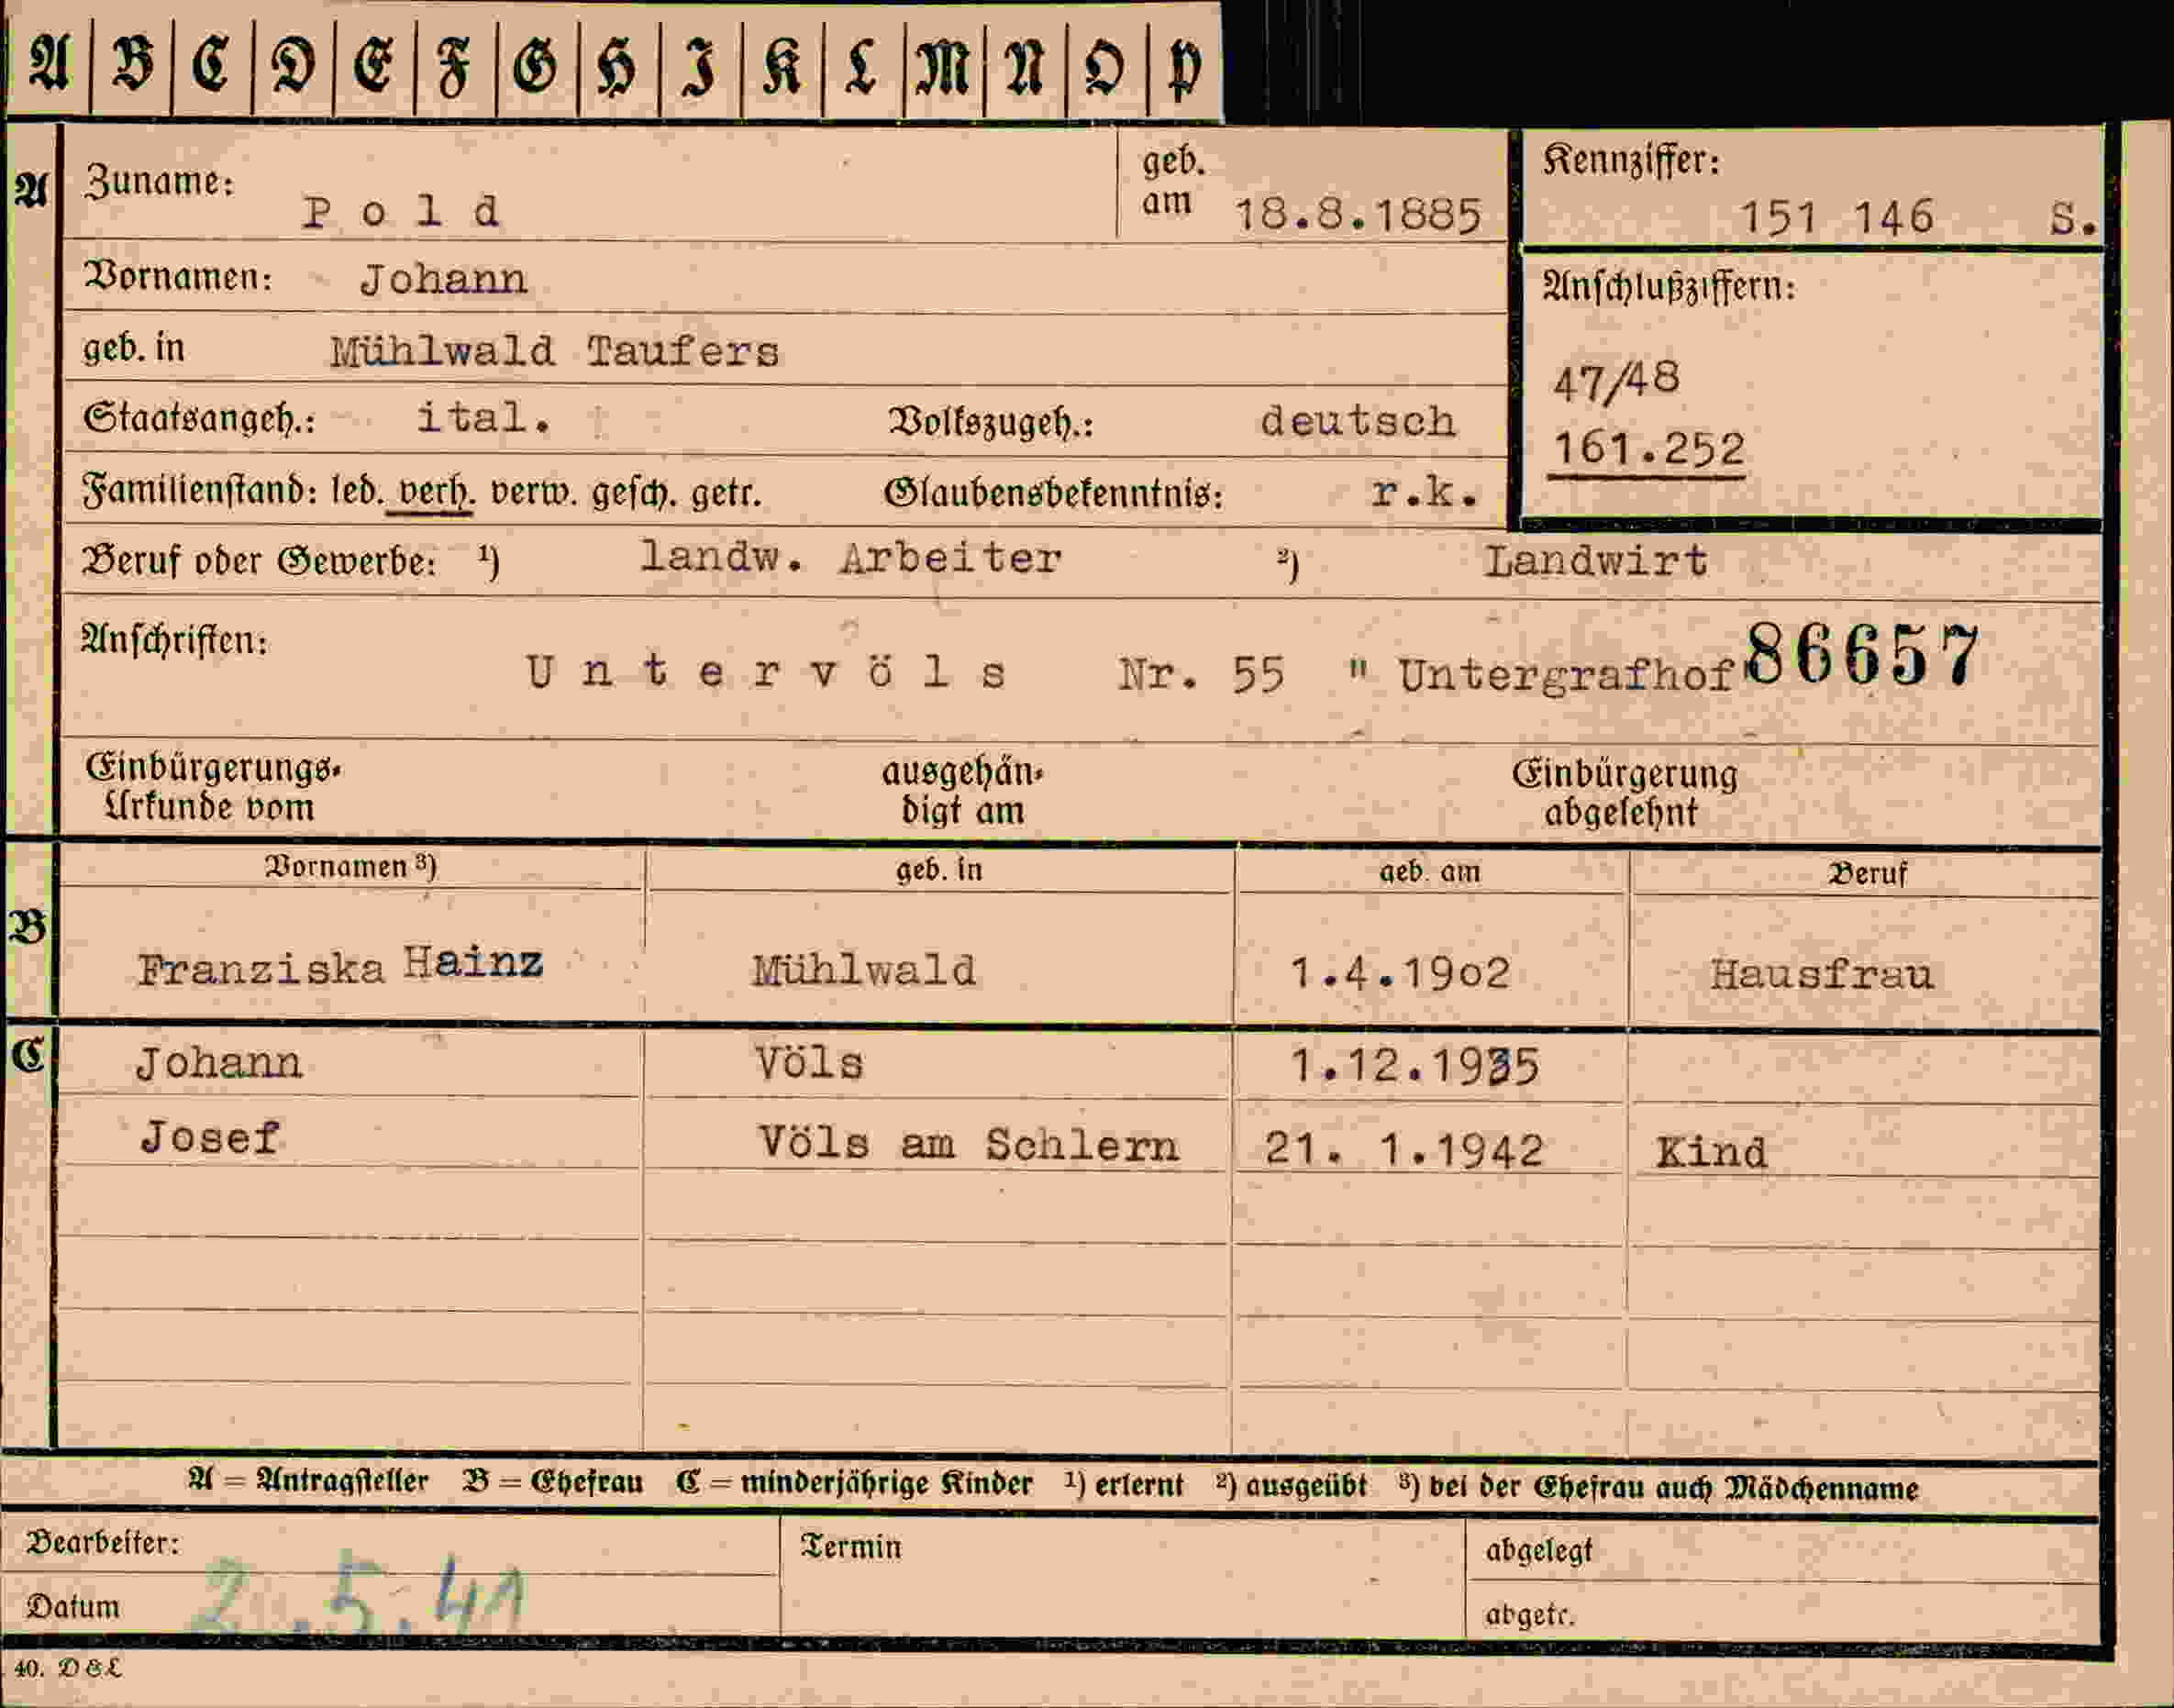 A B C D E F G H I K L M N O P
A Zuname: Pold geb. am 18.8.1885 Kennziffer: 151 146 S.
Vornamen: Johann Anschlußziffern:
geb. in Mühlwald Taufers 47/48
Staatsangeh.: ital. Volkszugeh.: deutsch 161.252
Familienstand: led. verh. verw. gesch. getr. Glaubensbekenntnis: r.k.
Beruf oder Gewerbe: ¹) landw. Arbeiter ²) Landwirt
Anschriften: Untervöls Nr. 55 " Untergrafhof 86657
Einbürgerungs- ausgehän- Einbürgerung
Urkunde vom digt am abgelehnt
Vornamen ³) geb. in geb. am Beruf
B Franziska Hainz Mühlwald 1.4.19o2 Hausfrau
C Johann Völs 1.12.1935
Josef Völs am Schlern 21. 1.1942 Kind
A = Antragsteller B = Ehefrau C = minderjährige Kinder ¹) erlernt ²) ausgeübt ³) bei der Ehefrau auch Mädchenname
Bearbeiter: Termin abgelegt
Datum 2.5.41 abgetr.
40. D & L